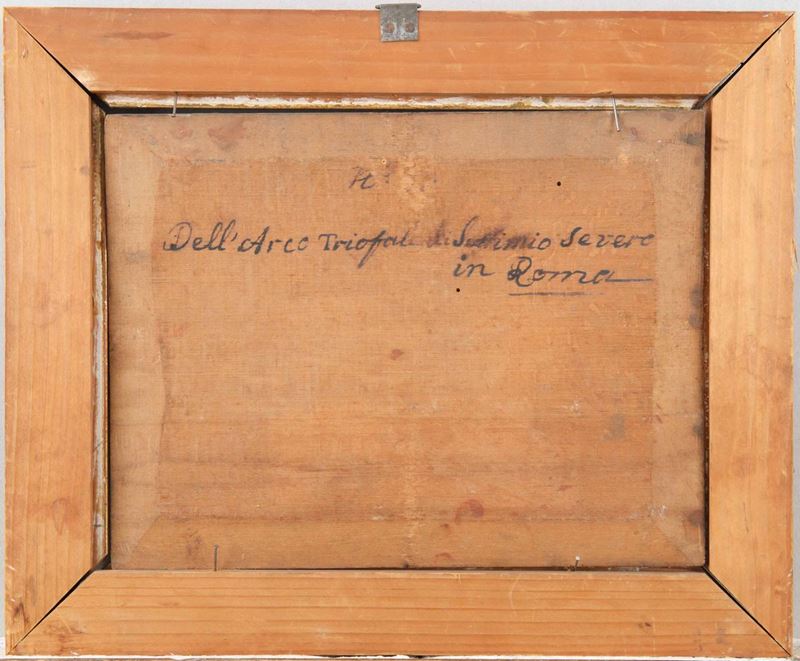 Dell'Arco Triofale Settimio Severo
in Roma